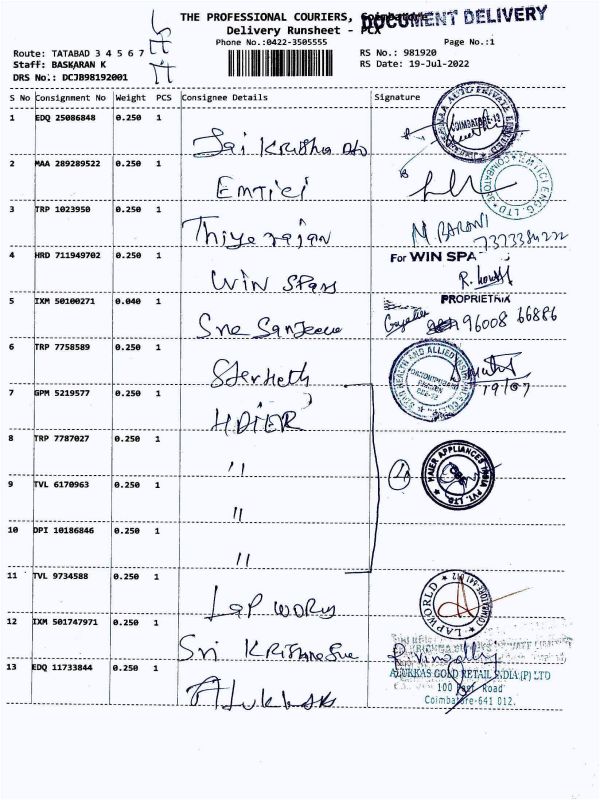 THE PROFESSIONAL COURIERS, Coimbatore
DOCUMENT DELIVERY
Delivery Runsheet - PCX
Phone No.:0422-3505555
Page No.:1
Route: TATABAD 3 4 5 6 7
RS No.: 981920
Staff: BASKARAN K
RS Date: 19-Jul-2022
DRS No.: DCJB98192001
S No Consignment No Weight PCS Consignee Details Signature
1 EDQ 25086848 0.250 1
Sai Krishna
COIMBATORE-12
2 MAA 289289522 0.250 1
EMTICI
EMTICI ENGG. LTD
3 TRP 1023950 0.250 1
Thiyagarajan
M BARANI
4 HRD 711949702 0.250 1
WIN SPAss
For WIN SPA
PROPRIETRIX
5 IXM 50100271 0.040 1
Sree Sanjeeve
96008 66886
6 TRP 7758589 0.250 1
HEALTH AND ALLIED INSURANCE CO.
19/07
7 GPM 5219577 0.250 1
HAIER
8 TRP 7787027 0.250 1
"
HAIER APPLIANCES INDIA PVT. LTD
9 TVL 6170963 0.250 1
"
10 DPI 10186846 0.250 1
"
11 TVL 9734588 0.250 1
LAP WORLD
LAPWORLD COIMBATORE-641 012
12 IXM 501747971 0.250 1
Sri KRISHNA
13 EDQ 11733844 0.250 1
ALUKKAS
ALUKKAS GOLD RETAIL INDIA (P) LTD
100 Feet Road
Coimbatore-641 012.